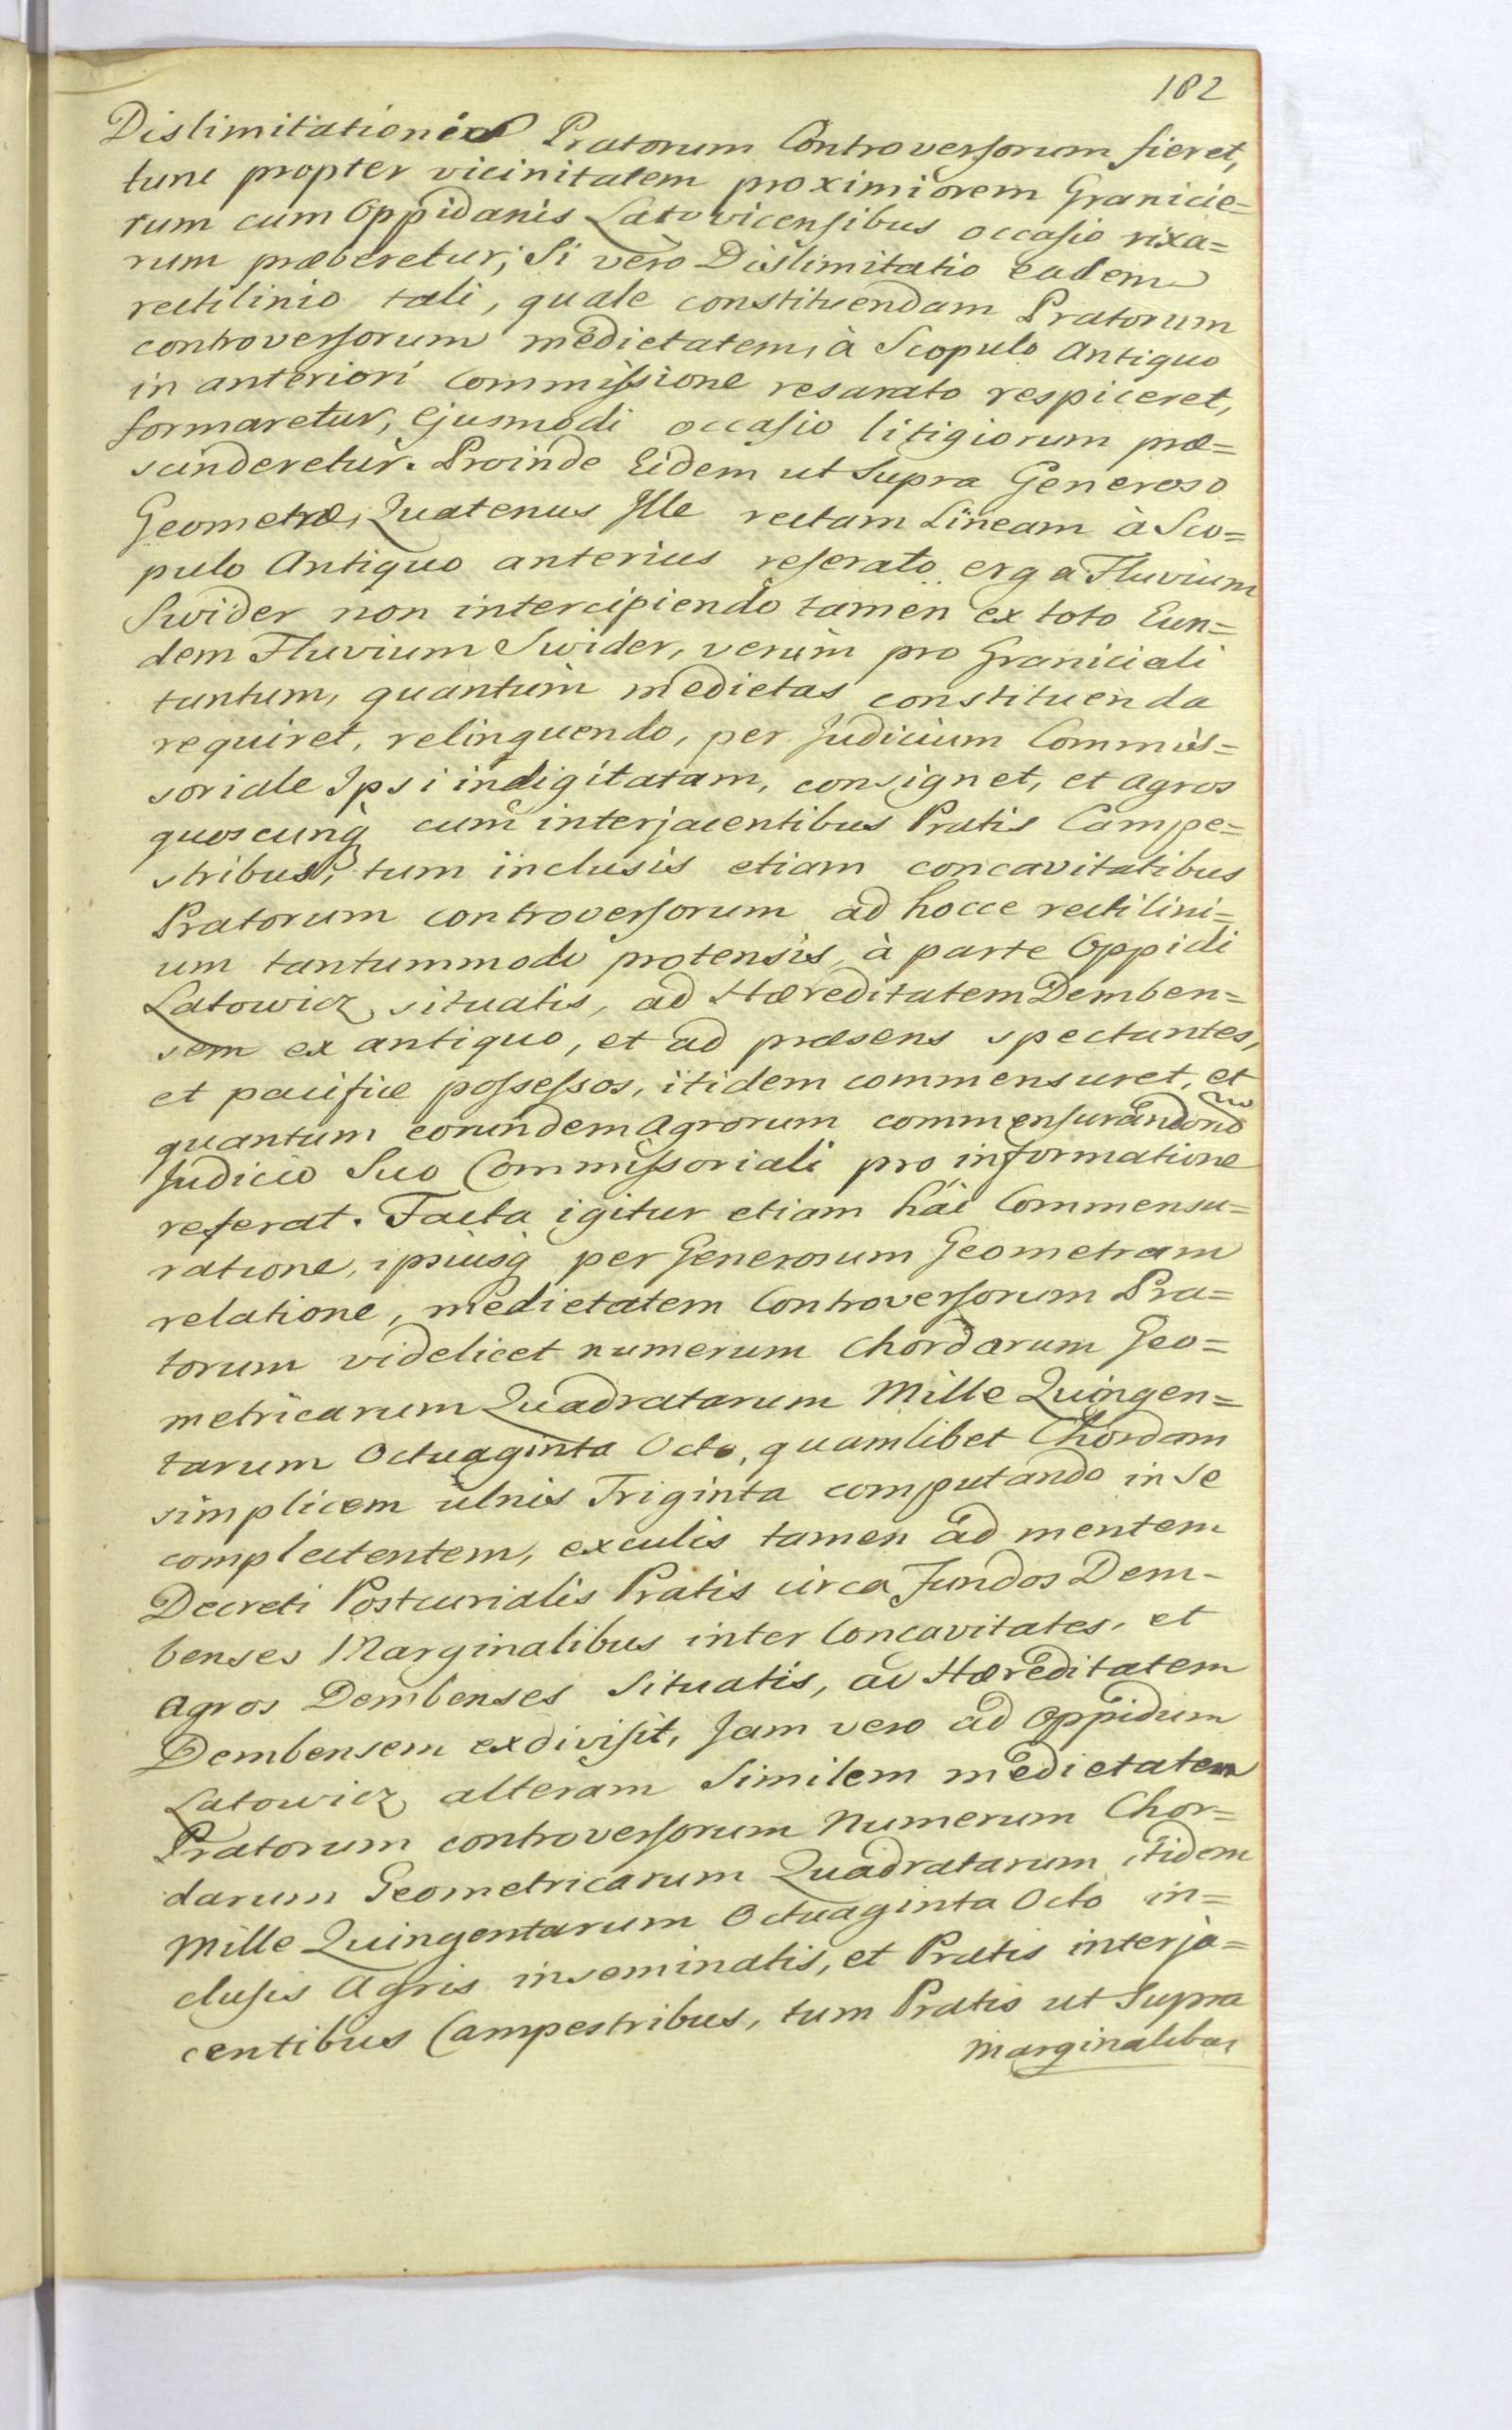 182
Dislimitationis Pratorum Controversorum fieret,
tunc propter vicinitatem proximiorem Granicie=
rum cum Oppidanis Latovicensibus occasio rixa=
rum præberetur; Si verò Dislimitatio eadem
rectilinio tali, quale constituendam Pratorum
controversorum medietatem, à Scopulo Antiquo
in anteriori Commissione resarato respiceret,
formaretur, Ejusmodi occasio litigiorum præ=
scinderetur. Proinde Eidem ut Supra Generoso
Geometræ, Quatenus Ille rectam Lineam à Sco=
pulo Antiquo anterius reserato erga Fluvium
Swider non intercipiendo tamen ex toto Eun=
dem Fluvium Swider, verùm pro Graniciali
tantum, quantùm medietas constituenda
requiret, relinquendo, per Judicium Commis=
soriale Ipsi indigitatam, consignet, et Agros
quoscunq cum interjacentibus Pratis Campe=
stribus, tum inclusis etiam concavitatibus
Pratorum controversorum ad hocce rectilini=
um tantummodo protensis, à parte Oppidi
Latowicz situatis, ad Hæreditatem Demben=
sem ex antiquo, et ad præsens spectantes,
et pacificè possessos, itidem commensuret, et
quantum eorundem Agrorum commensurando
Judicio Suo Commissoriali pro informatione
referat. Facta igitur etiam hác Commensu=
ratione, ipsiusq per Generosum Geometram
relatione, medietatem Controversorum Pra=
torum videlicet numerum Chordarum Geo=
metricarum Quadratarum Mille Quingen=
tarum Octuaginta Octo, quamlibet Chordam
simplicem ulnis Triginta computando in se
complectentem, exculis tamen ad mentem
Decreti Postcurialis Pratis circa Fundos Dem-
benses Marginalibus inter Concavitates, et
Agros Dembenses Situatis, ad Hæreditatem
Dembensem exdivisit, Jam vero ad Oppidum
Latowicz alteram Similem medietatem
Pratorum controversorum Numerum Chor=
darum Geometricarum Quadratarum itidem
Mille Quingentarum Octuaginta Octo in=
clusis Agris inseminatis, et Pratis interja=
centibus Campestribus, tum Pratis ut Supra
marginalibus